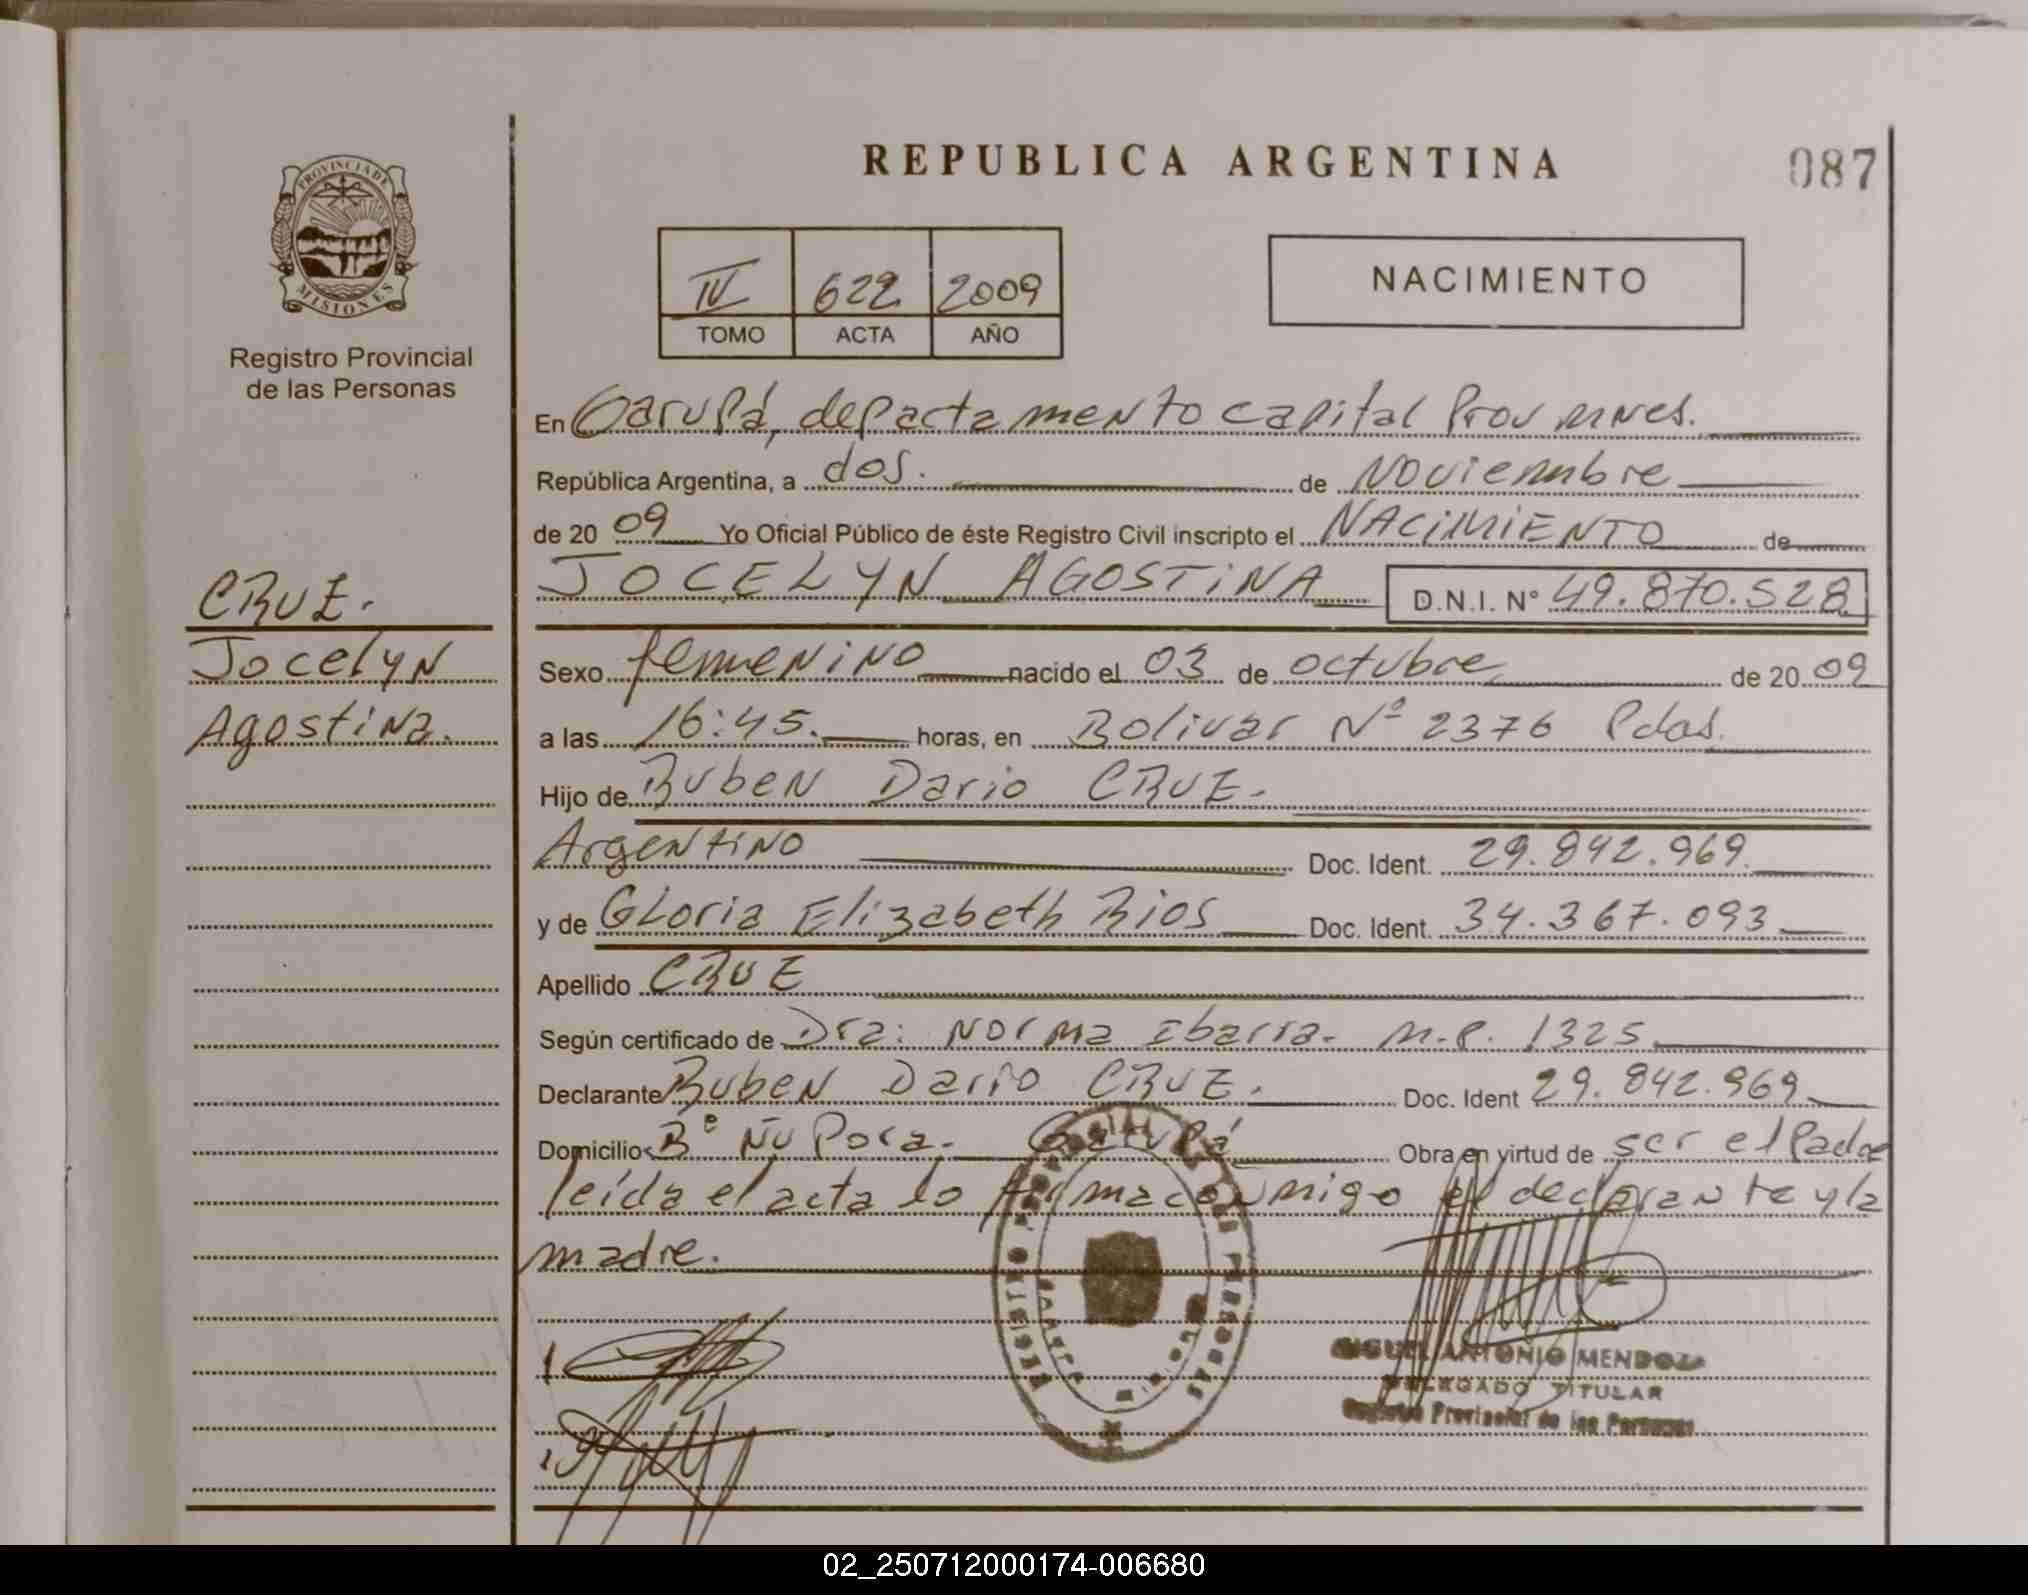 REPUBLICA ARGENTINA
087
PROVINCIA DE
MISIONES
Registro Provincial
de las Personas
IV 622 2009
TOMO ACTA AÑO
NACIMIENTO
CRUZ.
Jocelyn
Agostina.
En Garupá, departamento capital Prov mnes.
República Argentina, a dos. de Noviembre
de 2009 Yo Oficial Público de éste Registro Civil inscripto el NACIMIENTO de
JOCELYN AGOSTINA D.N.I. N° 49.870.528
Sexo femenino nacido el 03 de octubre de 2009
a las 16:45. horas, en Bolivar Nº 2376 Pdas.
Hijo de Ruben Dario CRUZ.
Argentino Doc. Ident. 29.842.969.
y de Gloria Elizabeth Rios Doc. Ident. 34.367.093
Apellido CRUZ
Según certificado de Dra: Norma Ibarra. M.P. 1325
Declarante Ruben Dario CRUZ. Doc. Ident 29.842.969
Domicilio Bº Ñu Pora. Garupá Obra en virtud de ser el Padre
leída el acta lo firma conmigo el declarante y la
madre.
MIGUEL ANTONIO MENDOZA
DELEGADO TITULAR
Registro Provincial de las Personas
02_250712000174-006680